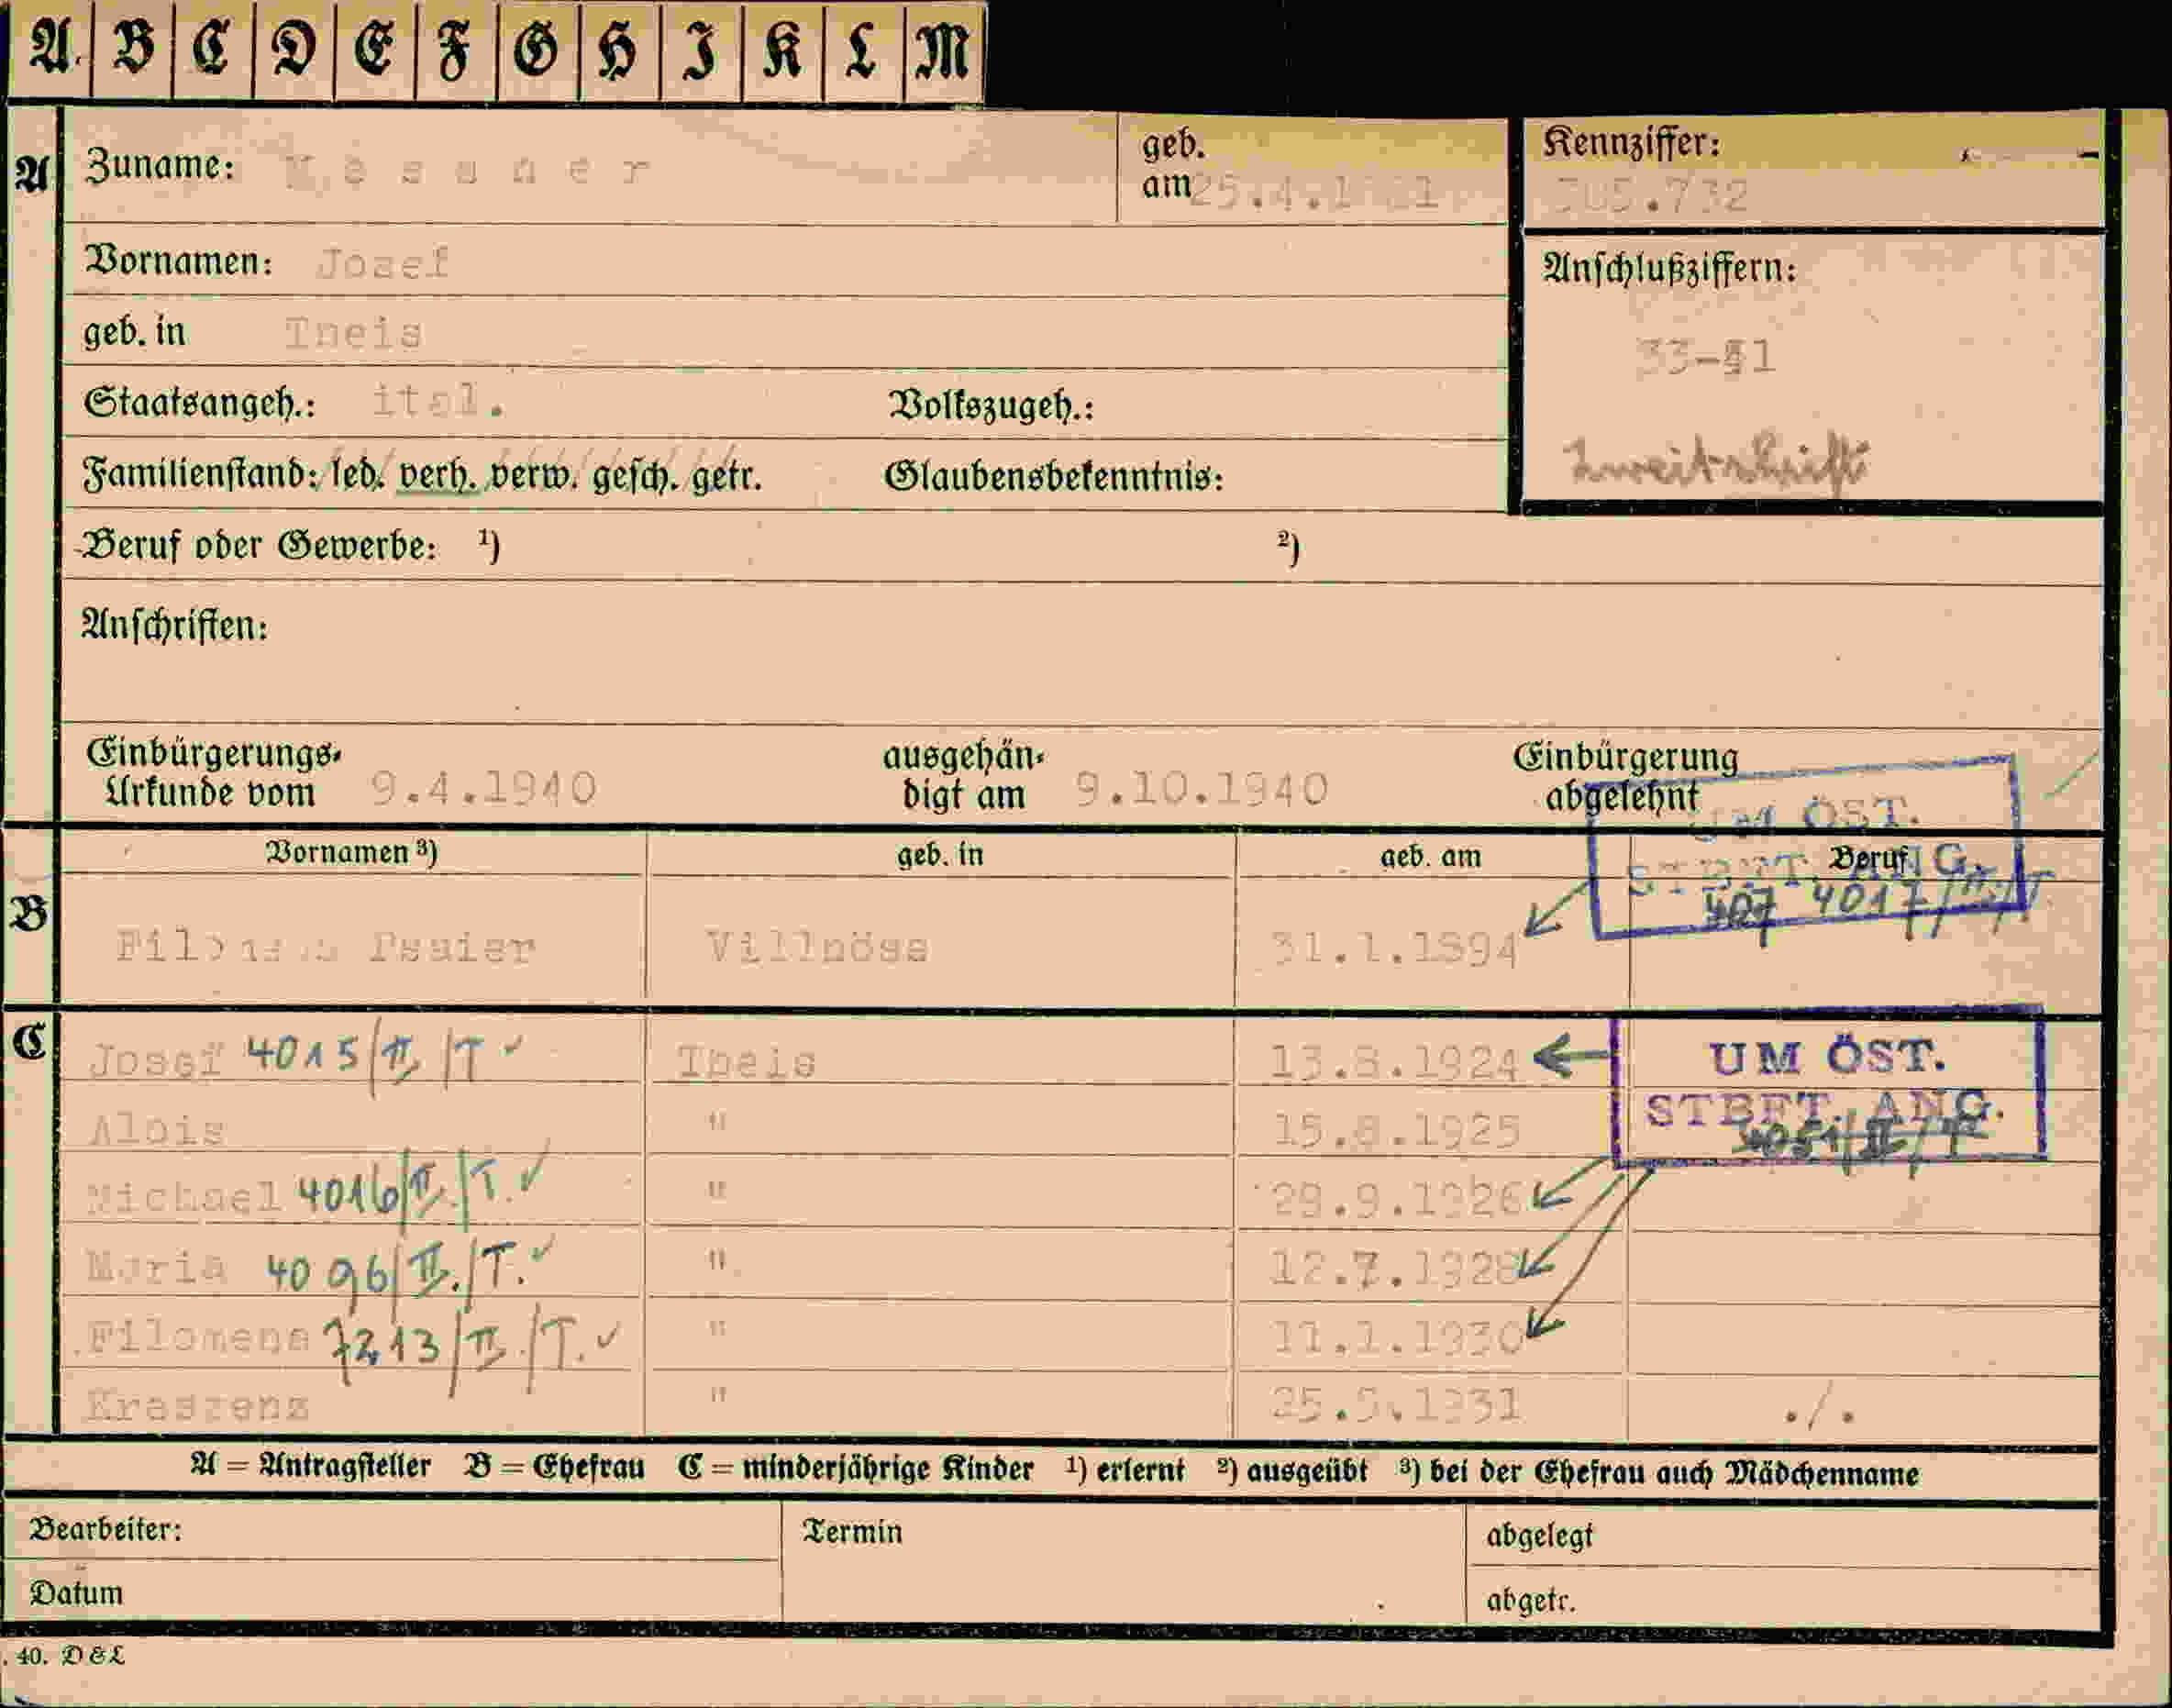 A B C D E F G H I K L M
A Zuname: geb. am 25.4. Kennziffer:
.732
Vornamen: Josef
Anschlußziffern:
geb. in Theis
33-§1
Staatsangeh.: ital. Volkszugeh.:
Zweitschrift
Familienstand: led. verh. verw. gesch. getr. Glaubensbekenntnis:
Beruf oder Gewerbe: ¹) ²)
Anschriften:
Einbürgerungs-Urkunde vom 9.4.1940 ausgehän-digt am 9.10.1940 Einbürgerung abgelehnt
UM ÖST.
STBFT. ANG.
Vornamen ³) geb. in geb. am Beruf
4017/II./T.
B Psaier Villnöss 31.1.1894
C Josef 4015/II/T ✓ Theis 13.3.1924 UM ÖST.
STBFT. ANG.
4051/II/T
Alois " 15.8.1925
Michael 4016/II./T. ✓ " 29.9.1926
Maria 4096/II./T. ✓ " 12.7.1928
Filomena 7213/II./T. ✓ " 11.1.1930
Kreszenz " ./.
A = Antragsteller B = Ehefrau C = minderjährige Kinder ¹) erlernt ²) ausgeübt ³) bei der Ehefrau auch Mädchenname
Bearbeiter: Termin abgelegt
Datum abgetr.
. 40. D & L